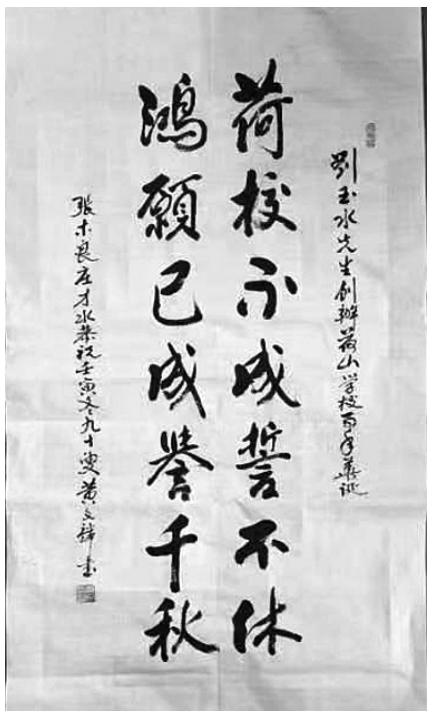 刘玉水先生创办荷山学校百年华诞
荷校不成誓不休
鸿愿已成誉千秋
张木良庄才水恭祝壬寅冬九十叟黄文锦书